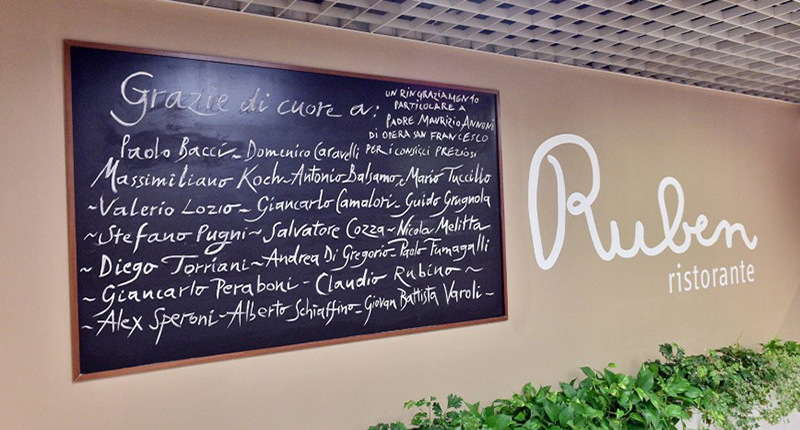 Grazie di cuore a:
UN RINGRAZIAMENTO
PARTICOLARE A
PADRE MAURIZIO ANNONI
DI OPERA SAN FRANCESCO
PER I CONSIGLI PREZIOSI
Paolo Bacci ~ Domenico Caravelli
Massimiliano Koch - Antonio Balsamo - Mario Tuccillo
~ Valerio Lozio - Giancarlo Camalori - Guido Grugnola
~ Stefano Pugni ~ Salvatore Cozza ~ Nicola Melitta
~ Diego Torriani ~ Andrea Di Gregorio - Paolo Fumagalli
~ Giancarlo Peraboni - Claudio Rubino ~
~ Alex Speroni - Alberto Schiaffino - Giovan Battista Varoli -
Ruben
ristorante